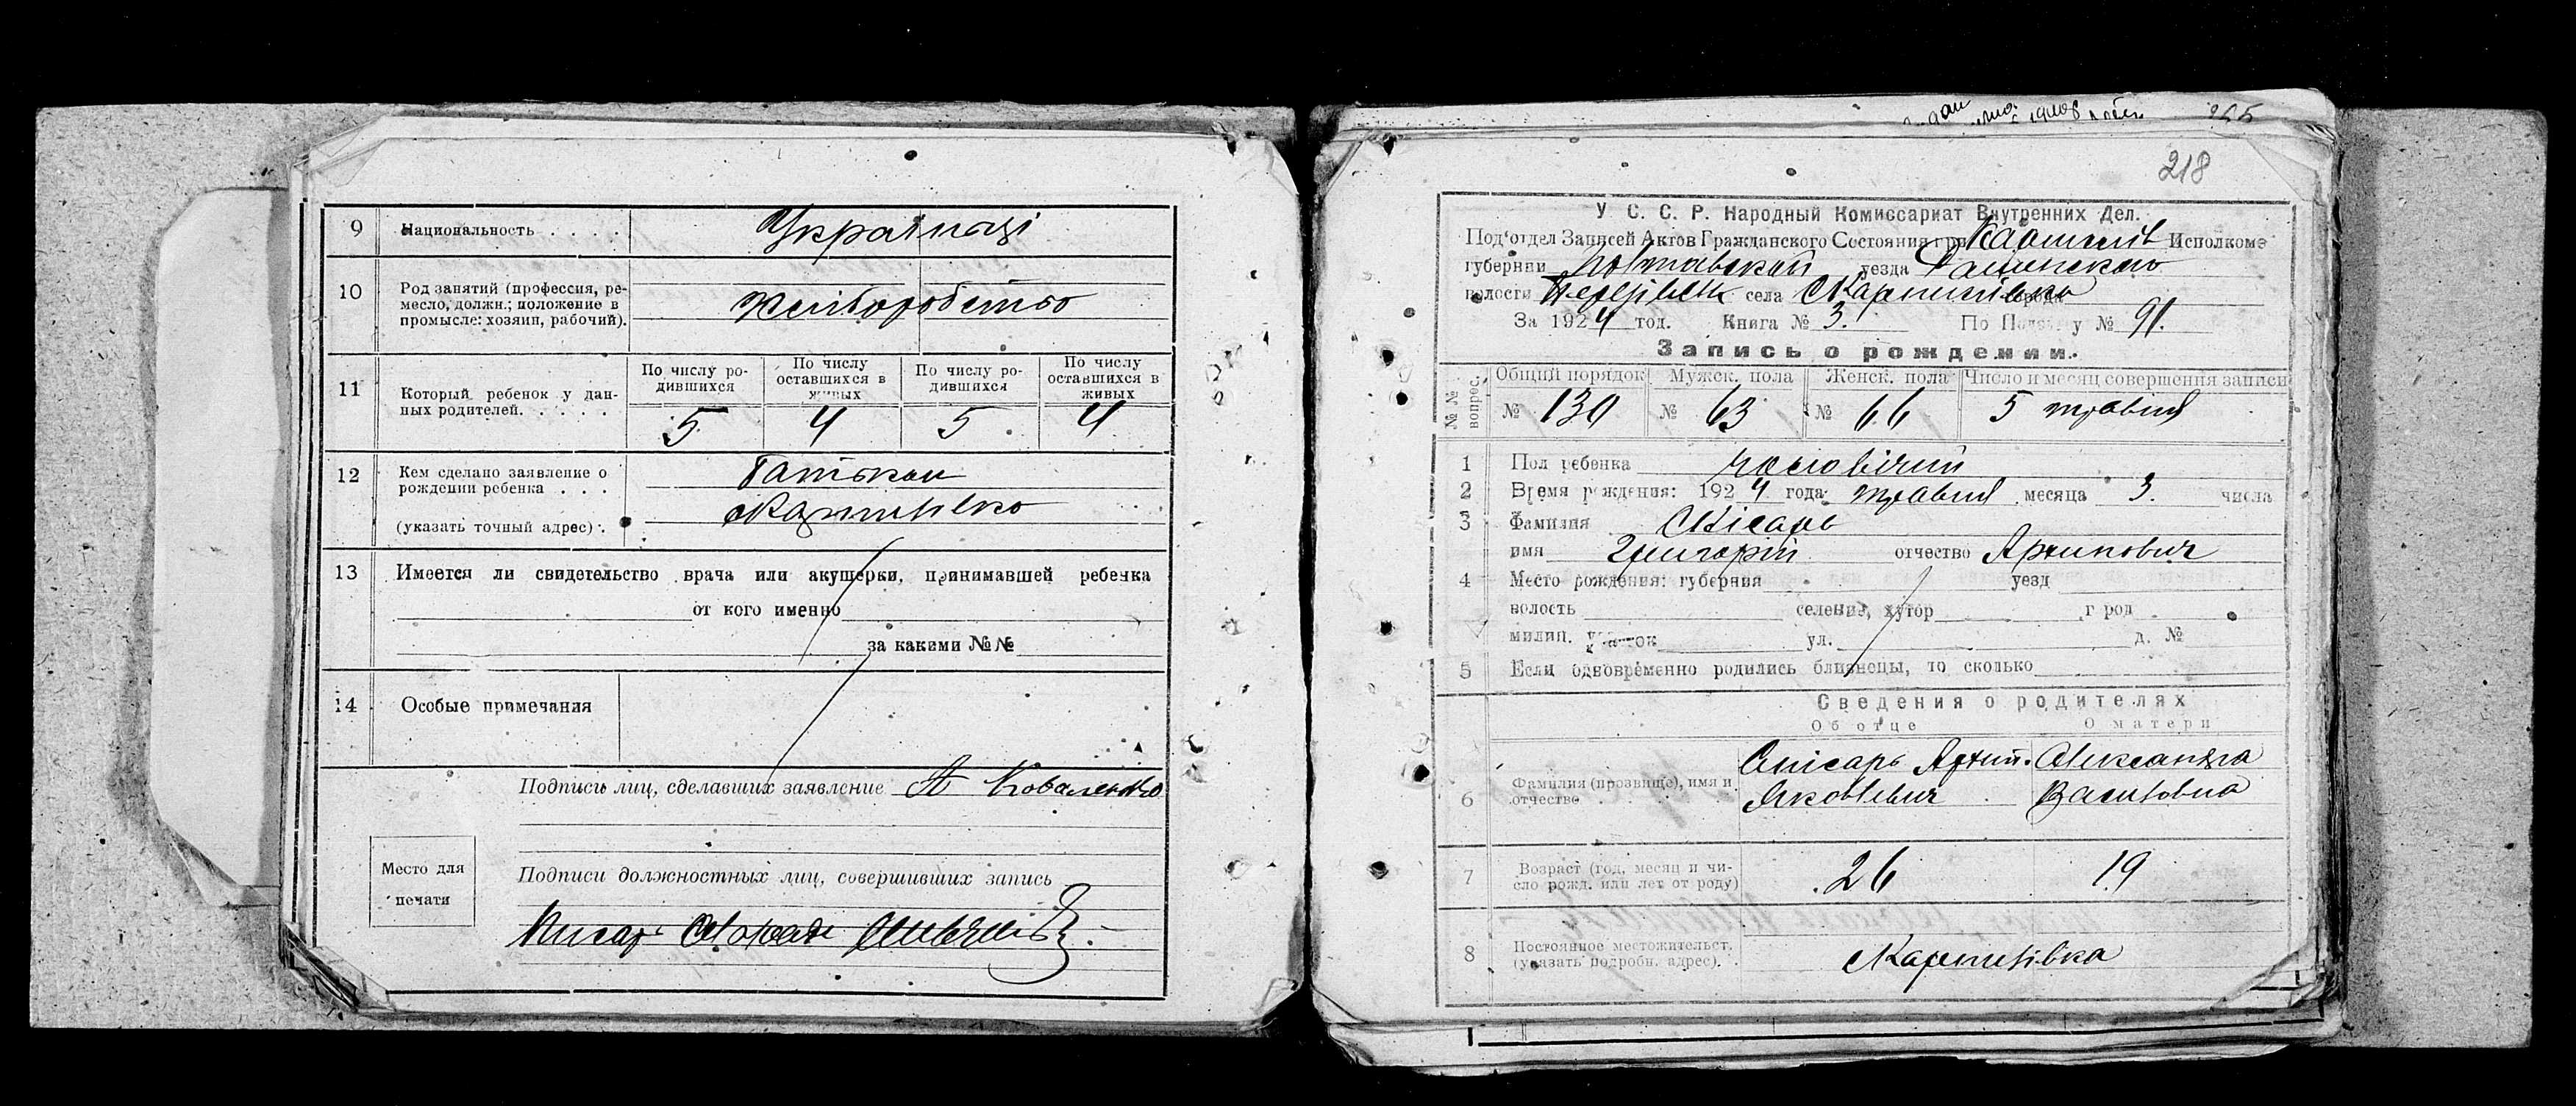 9 Национальность . . . . Українці
10 Род занятий (профессия, ре-
месло, должн.; положение в
промысле: хозяин, рабочий). Хліборобство
11 Который ребенок у дан-
ных родителей. . . . .
По числу ро-
дившихся
По числу
оставшихся в
живых
По числу ро-
дившихся
По числу
оставшихся в
живых
5 4 5 4
12 Кем сделано заявление о
рождении ребенка . . .
(указать точный адрес) .
Батьком
Карпилівка
13 Имеется ли свидетельство врача или акушерки, принимавшей ребенка
от кого именно
за какими №№
14 Особые примечания
Подписи лиц, сделавших заявление А Коваленко
Место для
печати
Подписи должностных лиц, совершивших запись
Писарь
218
У С. С. Р. Народный Комиссариат Внутренних Дел.
Под'отдел Записей Актов Гражданского Состояния при Исполкоме
губернии Полтавской уезда
волости села Карпилівка города
За 1924 год. Книга № 3. По № 91.
Запись о рождении.
№ № вопрос.
Общий порядок Мужск. пола Женск. пола Число и месяц совершения записи
№ 130 № 63 № 66 5 травня
1 Пол ребенка чоловічий
2 Время рождения: 1924 года травня месяца 3. числа
3 Фамилия
имя Григорій отчество Архипович
4 Место рождения: губерния уезд
волость селение, хутор город
милиц. участок ул. д. №
5 Если одновременно родились близнецы, то сколько
Сведения о родителях
Об отце О матери
6 Фамилия (прозвище), имя и
отчество . . . .
Архип.
Яковлевич
Олександра
Василовна
7 Возраст (год, месяц и чи-
сло рожд. или лет от роду) 26 19
8 Постоянное местожительст.
(указать подробн. адрес). . Карпилівка